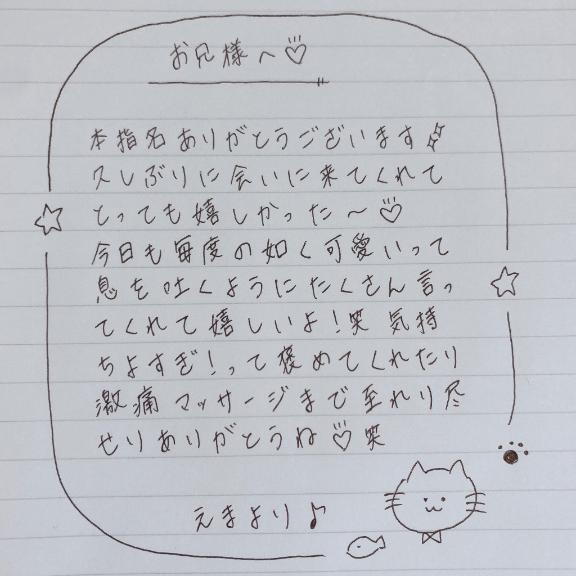 お兄様へ♡
本指名ありがとうございます
久しぶりに会いに来てくれて
とっても嬉しかった〜♡
今日も毎度の如く可愛いって
息を吐くようにたくさん言っ
てくれて嬉しいよ！笑 気持
ちよすぎ！って褒めてくれたり
激痛マッサージまで至れり尽
せりありがとうね♡笑
えまより♪